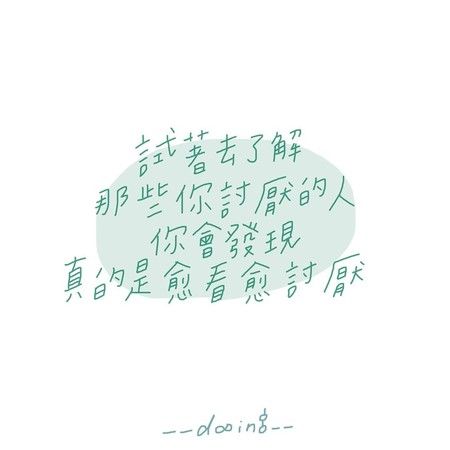 試著去了解
那些你討厭的人
你會發現
真的是愈看愈討厭
--dooing--